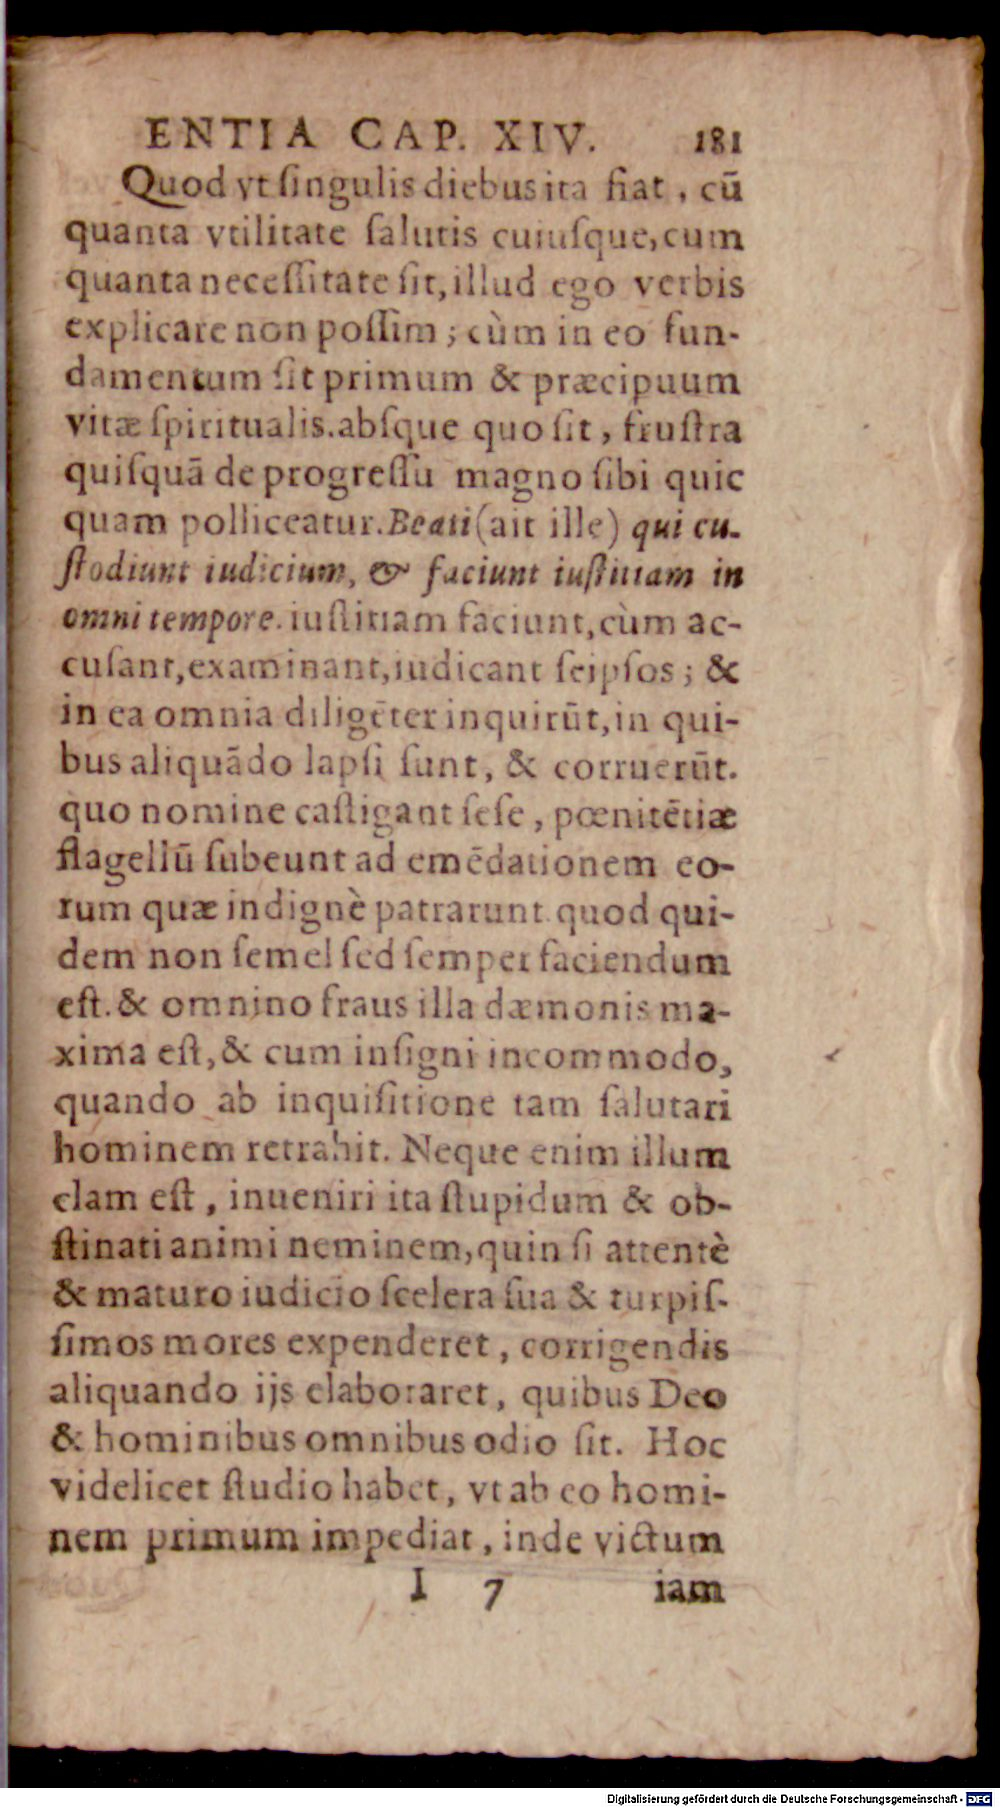 ENTIA CAP. XIV. 181
Quod vt ſingulis diebus ita fiat, cū
quanta vtilitate ſalutis cuiuſque, cum
quanta neceſſitate ſit, illud ego verbis
explicare non poſſim; cùm in eo fun-
damentum ſit primum & præcipuum
vitæ ſpiritualis. abſque quo ſit, fruſtra
quiſquā de progreſſu magno ſibi quic
quam polliceatur. Beati (ait ille) qui cu-
ſtodiunt iudicium, & faciunt iuſtitiam in
omni tempore. iuſtitiam faciunt, cùm ac-
cuſant, examinant, iudicant ſeipſos; &
in ea omnia diligēter inquirūt, in qui-
bus aliquādo lapſi ſunt, & corruerūt.
quo nomine caſtigant ſeſe, pœnitētiæ
flagellū ſubeunt ad emēdationem eo-
rum quæ indignè patrarunt. quod qui-
dem non ſemel ſed ſemper faciendum
eſt. & omnino fraus illa dæmonis ma-
xima eſt, & cum inſigni incommodo,
quando ab inquiſitione tam ſalutari
hominem retrahit. Neque enim illum
clam eſt, inueniri ita ſtupidum & ob-
ſtinati animi neminem, quin ſi attentè
& maturo iudicio ſcelera ſua & turpiſ-
ſimos mores expenderet, corrigendis
aliquando ijs elaboraret, quibus Deo
& hominibus omnibus odio ſit. Hoc
videlicet ſtudio habet, vt ab eo homi-
nem primum impediat, inde victum
I 7 iam
Digitalisierung gefördert durch die Deutsche Forschungsgemeinschaft - DFG